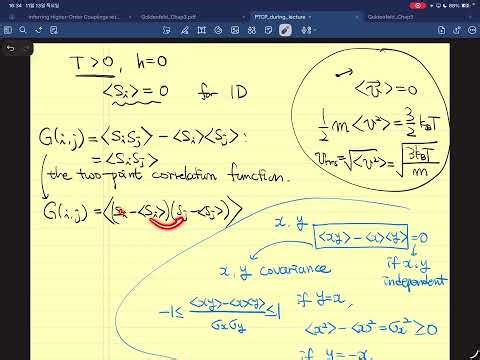 16:34 11월 13일 목요일
88%
Inferring Higher-Order Couplings wi...
Goldenfeld_Chap3.pdf
PTCP_during_lecture
Goldenfeld_Chap3
T > 0, h=0
<S_i> = 0 for 1D
G(i,j) = <S_i S_j> - <S_i><S_j> :
= <S_i S_j>
the two-point correlation function.
G(i,j) = <(S_i - <S_i>)(S_j - <S_j>)>
<v⃗> = 0
1/2 m <v²> = 3/2 k_B T
v_rms = √<v²> = √(3k_BT/m)
x, y
<xy> - <x><y> = 0
if x, y independent
x, y covariance
-1 ≤ (<xy> - <x><y>)/(σ_x σ_y) ≤ 1
if y=x,
<x²> - <x>² = σ_x² ≥ 0
if y = -x,